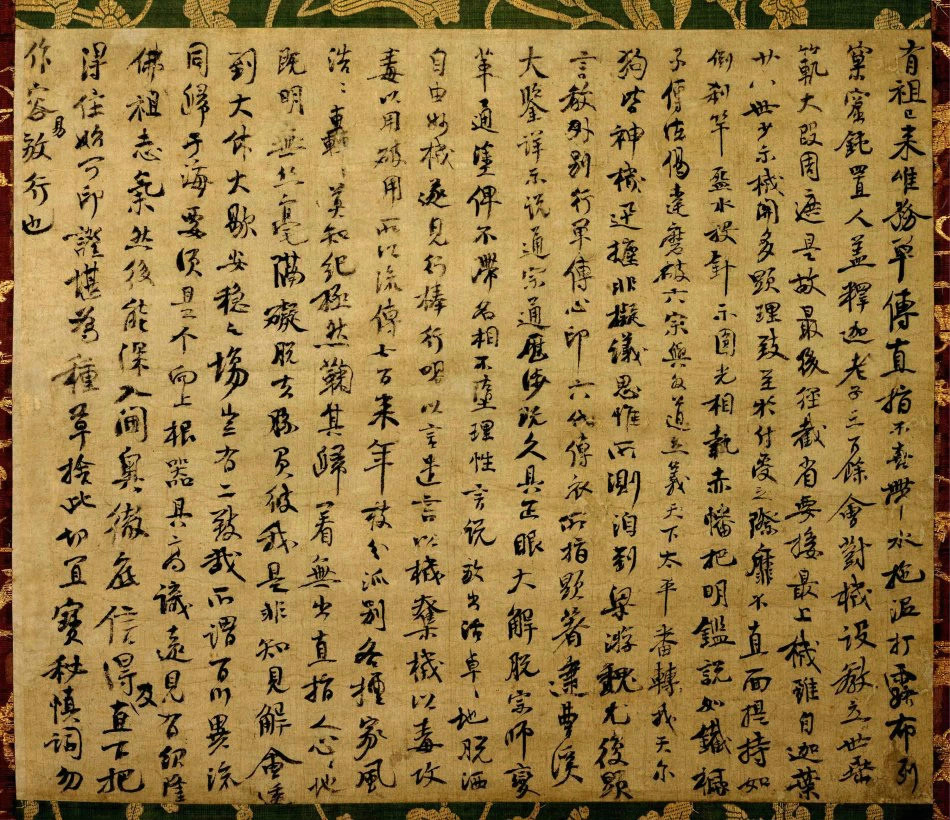 有祖已来唯務單傳直指不喜帶水拖泥打露布列
窠窟鈍置人蓋釋迦老子三百餘會對機設教立世垂
範大段周遮是故最後徑截省要接最上機雖自迦葉
廿八世少示機關多顯理致至於付受之際靡不直面提持如
倒刹竿盌水投針示圓光相執赤幡把明鑑説如鐵橛
子傳法偈達磨破六宗與外道立義天下太平番轉我天尔
狗皆神機迅捷非擬議思惟所測洎到梁游魏尤復顯
言教外別行單傳心印六代傳衣所指顯著逮曹溪
大鑒詳示説通宗通歷涉既久具正眼大解脱宗師變
革通塗俾不滯名相不墮理性言説放出活卓〻地脱洒
自由妙機遂見行棒行喝以言遣言以機奪機以毒攻
毒以用破用所以流傳七百来年枝分派別各擅家風
浩〻轟〻莫知紀極然鞠其歸著無出直指人心〻地
既明無絲毫隔礙脱去勝負彼我是非知見解會透
到大休大歇安穩之場豈有二致哉所謂百川異流
同歸于海要須是个向上根器具高識遠見有紹隆
佛祖志氣然後能深入閫奥徹底信得及直下把
得住始可印證堪為種草捨此切宜寶秘慎詞勿
作容易放行也